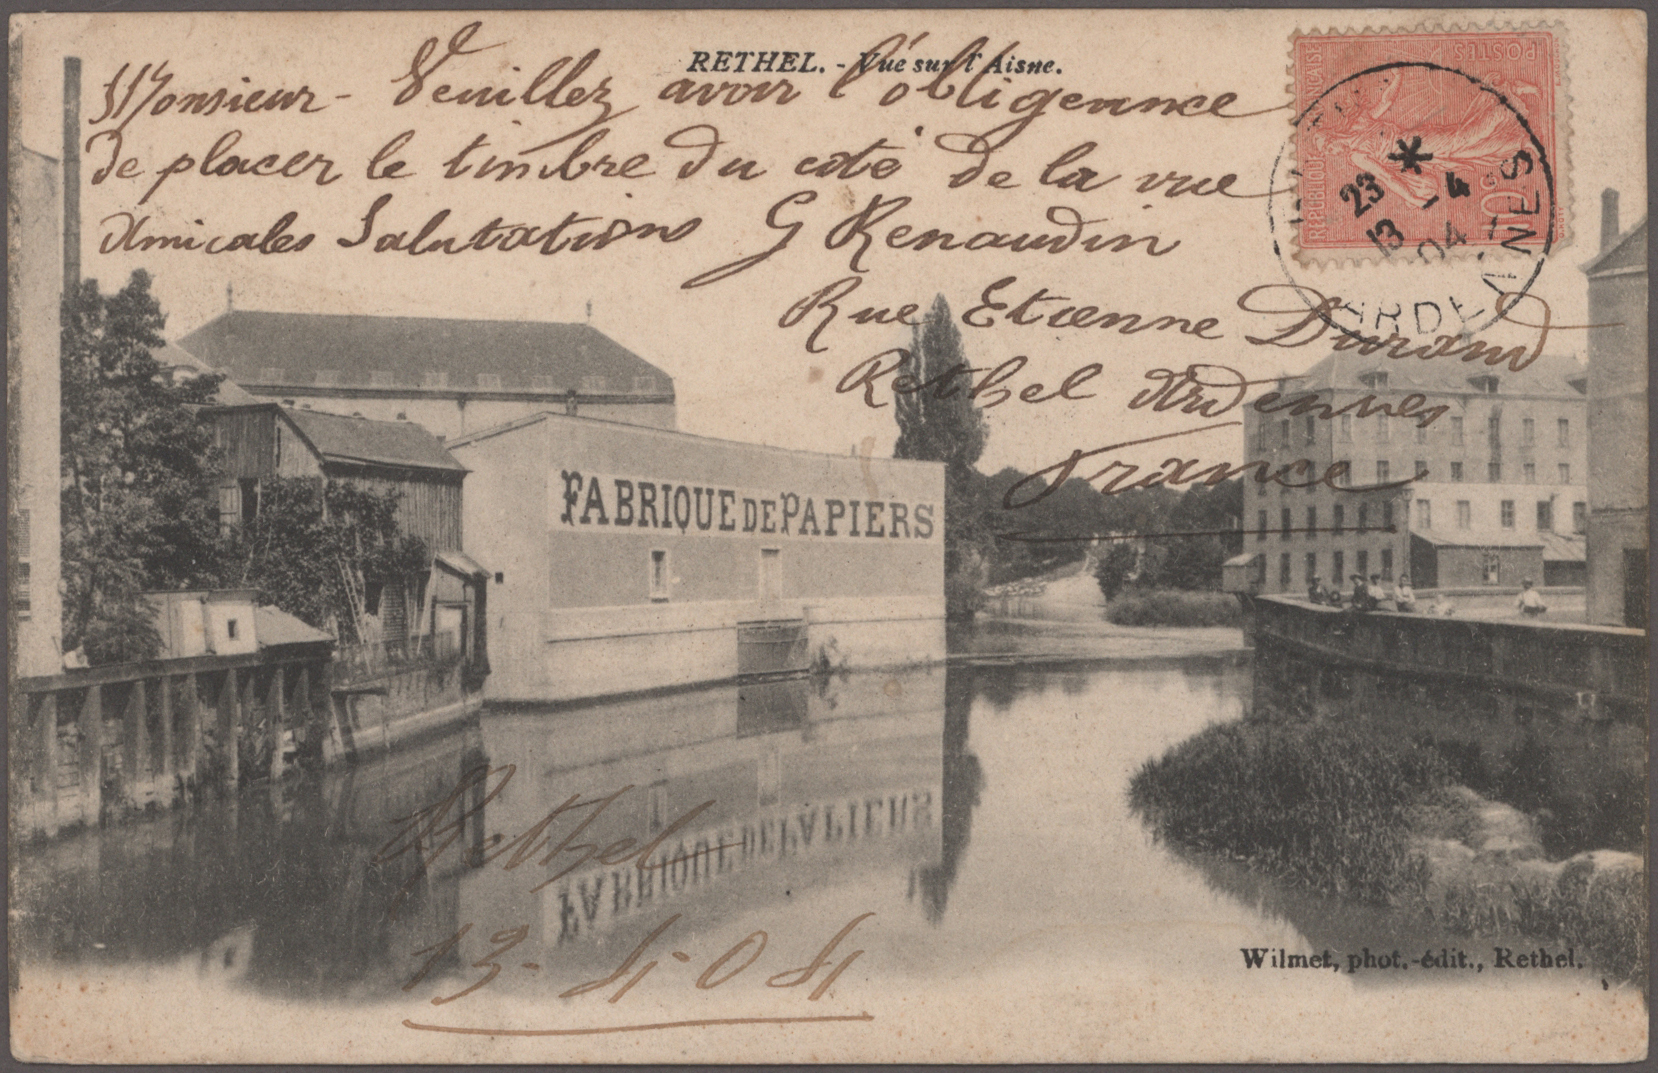 RETHEL. - Vue sur l'Aisne.
Monsieur - Veuillez avoir l'obligeance
de placer le timbre du coté de la vue
Amicales Salutations G Renaudin
Rue Etienne Durand
Rethel Ardennes
France
POSTES
RÉPUBLIQUE FRANÇAISE
10c
23
13 - 4
04
ARDENNES
FABRIQUE DE PAPIERS
Rethel
13-4-04
Wilmet, phot.-édit., Rethel.